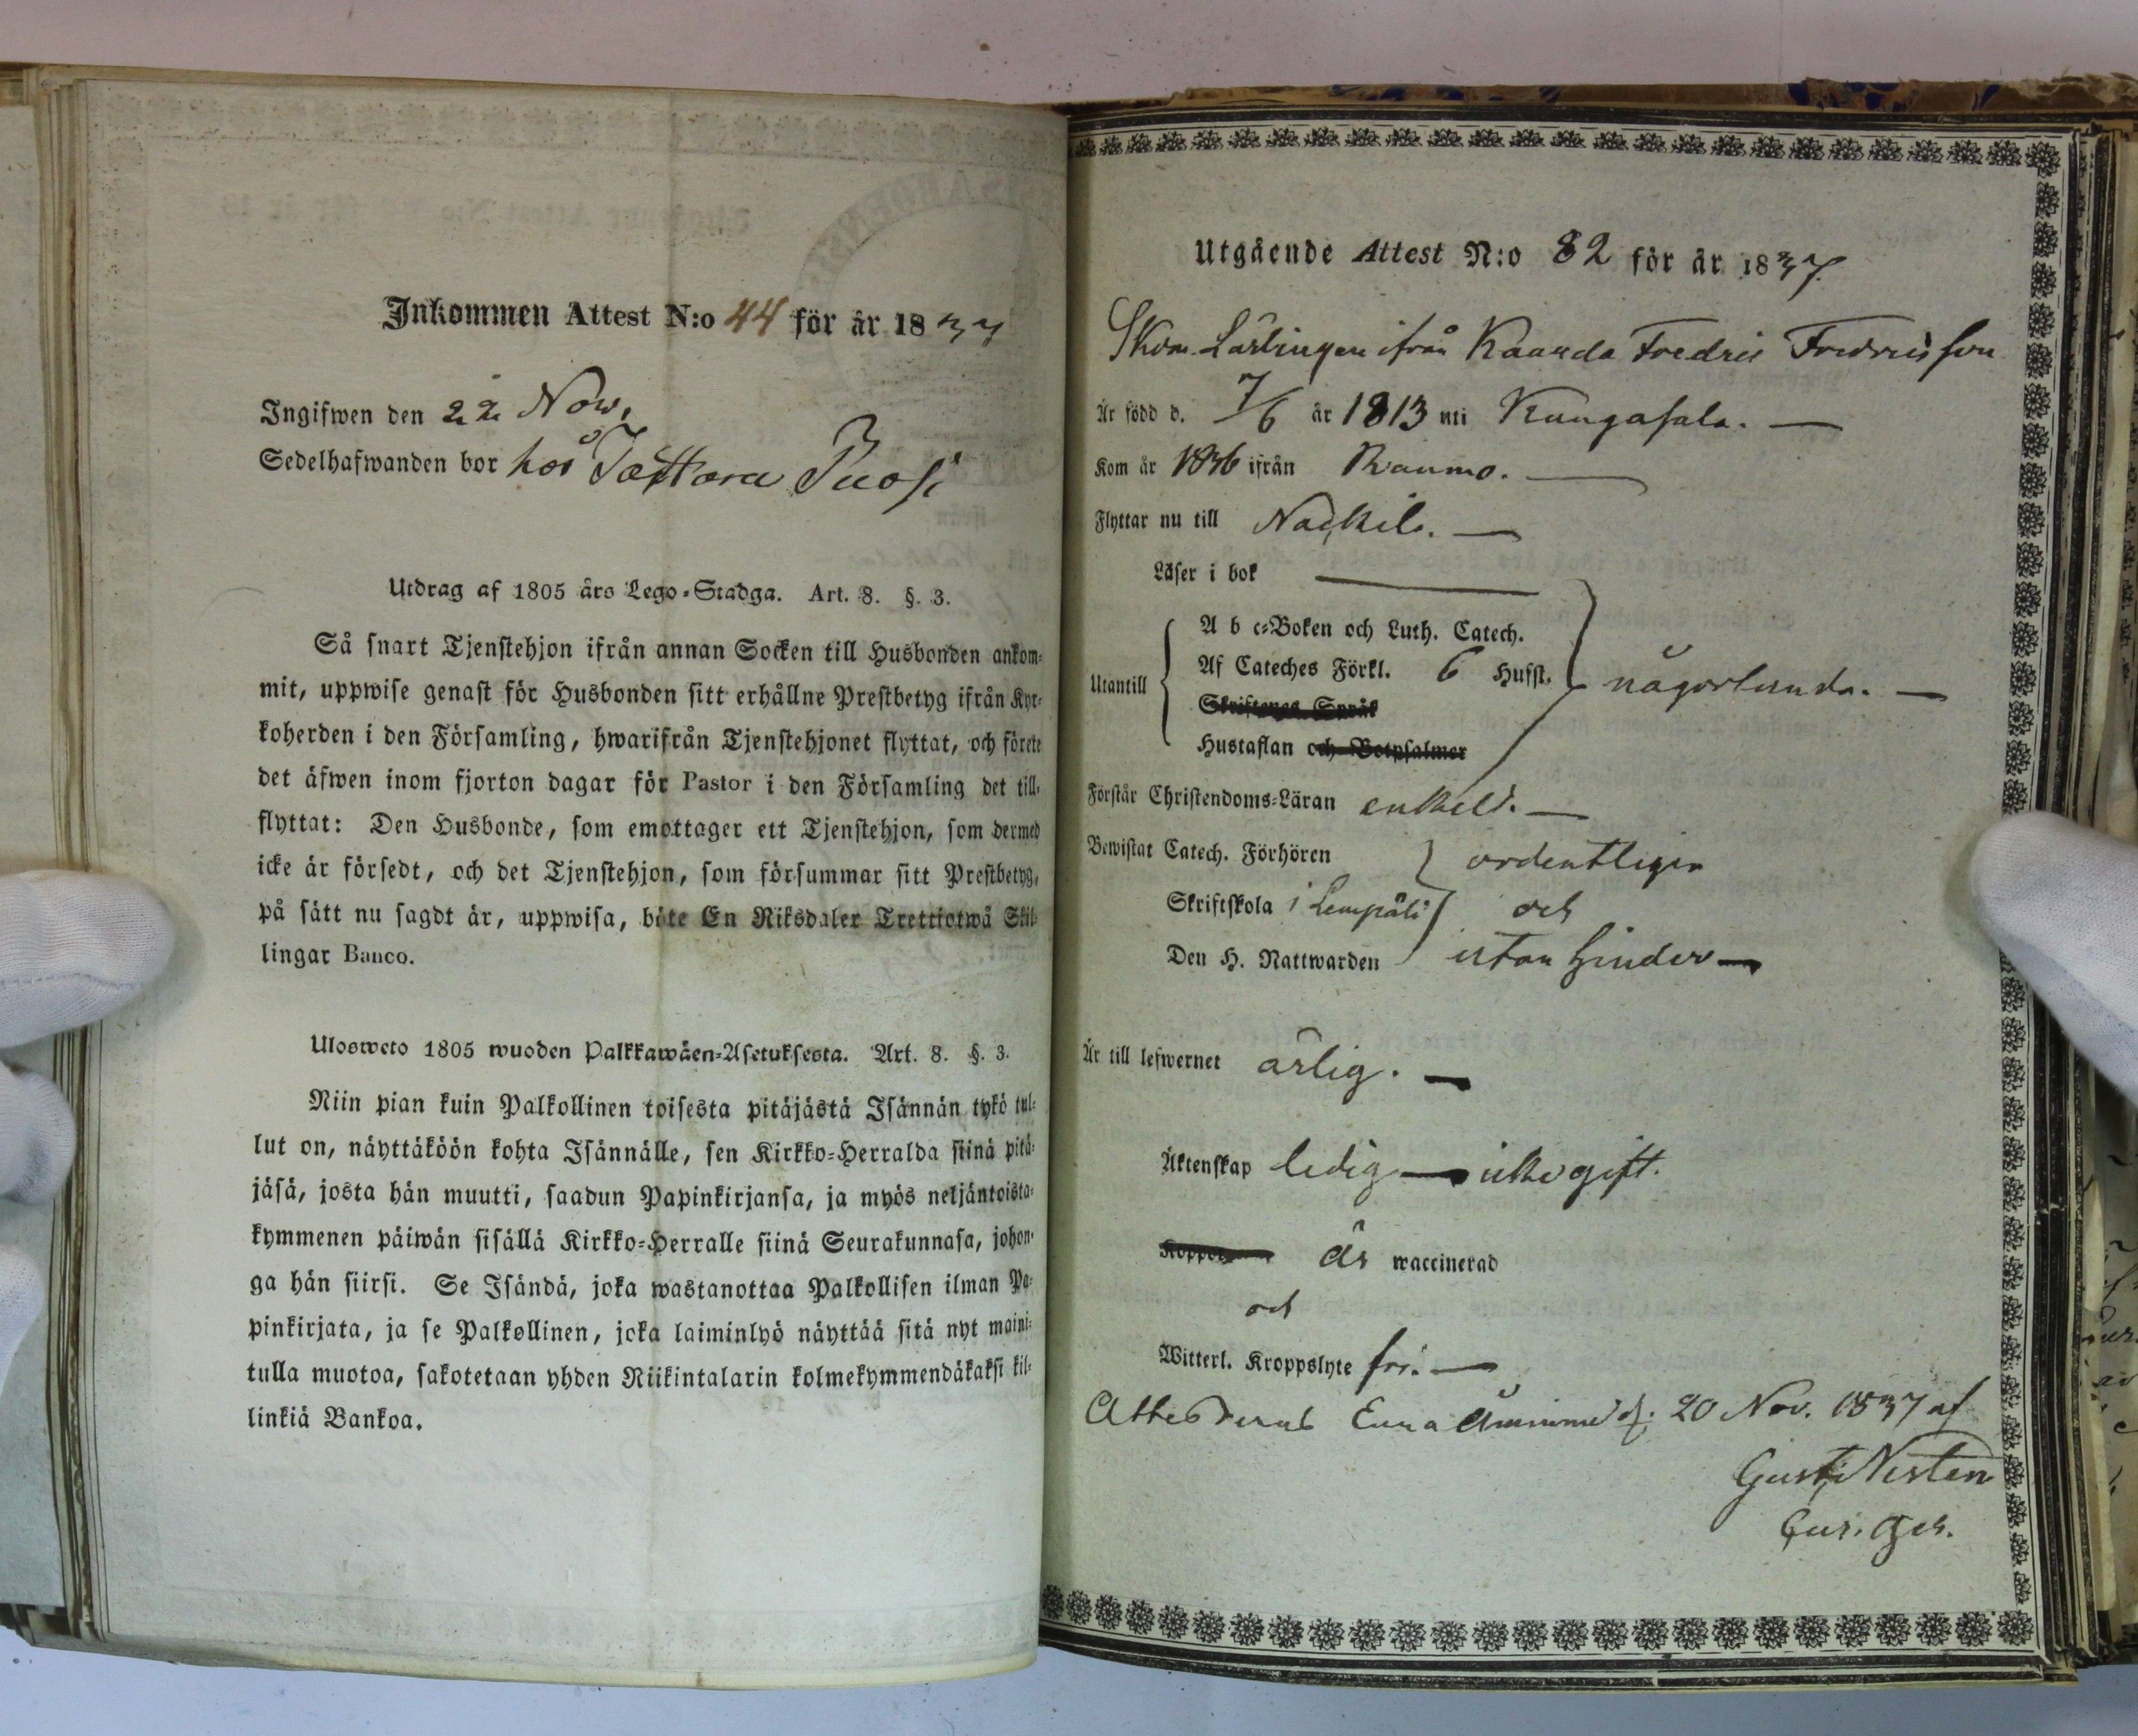 Inkommen Attest N:o 44 för år 1837
Ingifwen den 22 Now.
Sedelhafwanden bor hos
Utdrag af 1805 års Lego-Stadga. Art. 8. §. 3.
Så snart Tjenstehjon ifrån annan Socken till Husbonden ankom-
mit, uppwise genast för Husbonden sitt erhållne Prestbetyg ifrån Kyr-
koherden i den Församling, hwarifrån Tjenstehjonet flyttat, och förete
det äfwen inom fjorton dagar för Pastor i den Församling det till-
flyttat: Den Husbonde, som emottager ett Tjenstehjon, som dermed
icke är försedt, och det Tjenstehjon, som försummar sitt Prestbetyg,
på sätt nu sagdt är, uppwisa, böte En Riksdaler Trettiotwå Skil-
lingar Banco.
Ulosweto 1805 wuoden Palkkawäen-Asetuksesta. Art. 8. §. 3.
Niin pian kuin Palkollinen toisesta pitäjästä Isännän tykö tul-
lut on, näyttäköön kohta Isännälle, sen Kirkko-Herralda siinä pitä-
jäsä, josta hän muutti, saadun Papinkirjansa, ja myös neljäntoista-
kymmenen päiwän sisällä Kirkko-Herralle siinä Seurakunnasa, johon-
ga hän siirsi. Se Isändä, joka wastanottaa Palkollisen ilman Pa-
pinkirjata, ja se Palkollinen, joka laiminlyö näyttää sitä nyt maini-
tulla muotoa, sakotetaan yhden Riikintalarin kolmekymmendäkaksi kil-
linkiä Bankoa.
Utgående Attest N:o 82 för år 1837
Skom. Lärlingen ifrån Kaanda Fredric Fredricsson
Är född d. 7/6 år 1813 uti Kangasala.
Kom år 1836 ifrån Raumo.
Flyttar nu till Nackila.
Läser i bok
Utantill
A b c-Boken och Luth. Catech.
Af Cateches Förkl. 6 Hufst.
Skriftenes Språk
Hustaflan och Botpsalmer
någorlunda.
Förstår Christendoms-Läran enkelt.
Bewistat Catech. Förhören ordentligen
Skriftskola i Lempälä och
Den H. Nattwarden utan hinder
Är till lefwernet ärlig.
Äktenskap ledig icke gift.
är waccinerad
och
Witterl. Kroppslyte fri.
Attesteras Eura Åminne d. 20 Nov. 1837 af